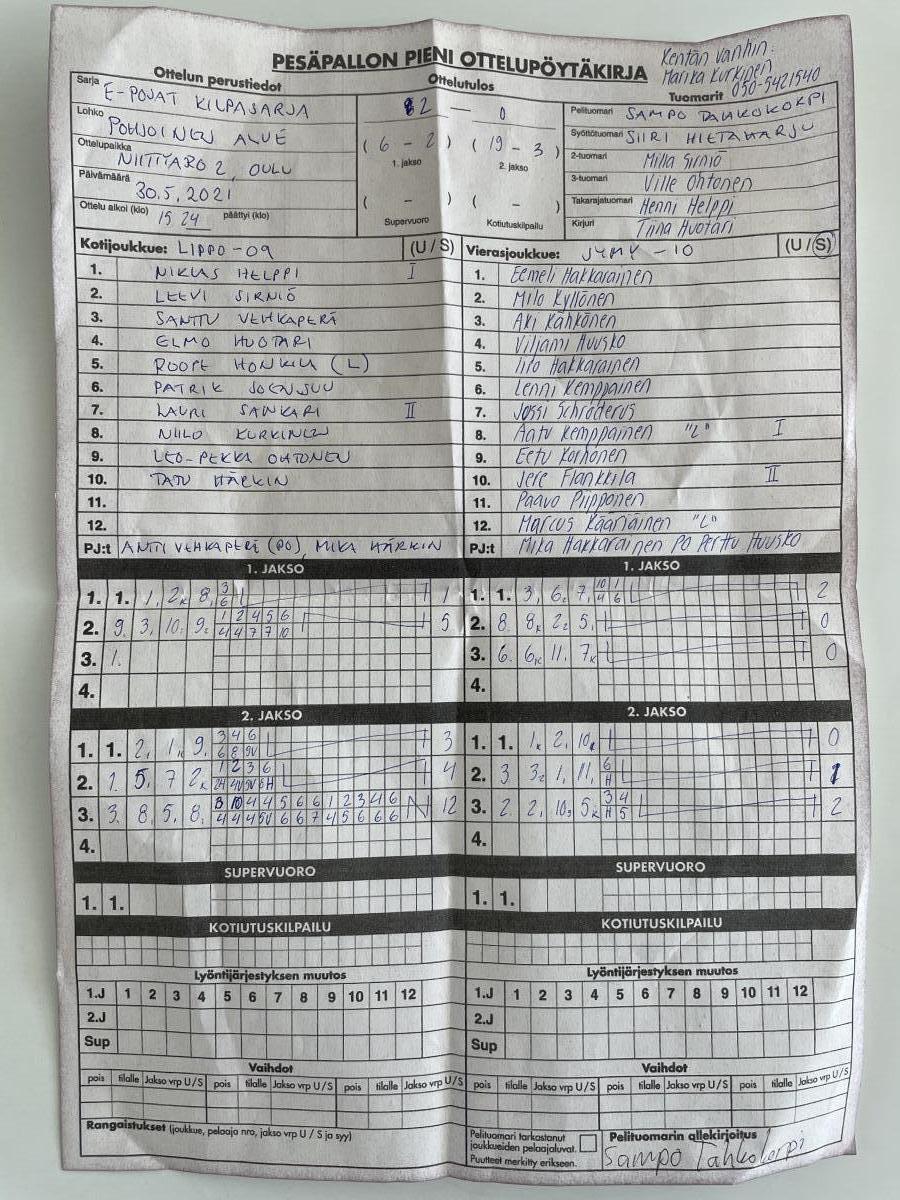 PESÄPALLON PIENI OTTELUPÖYTÄKIRJA
Kentän vanhin:
Marika Kurkinen
050-5421540
Ottelun perustiedot
Ottelutulos
Tuomarit
Sarja E-POJAT KILPASARJA
Lohko POHJOINEN ALUE
Ottelupaikka NIITTYARO 2, OULU
Päivämäärä 30.5.2021
Ottelu alkoi (klo) 15 24 päättyi (klo)
2 — 0
(6 - 2) (19 - 3)
1. jakso 2. jakso
( - ) ( - )
Supervuoro Kotiutuskilpailu
Pelituomari SAMPO TAHKOKORPI
Syöttötuomari SIIRI HIETAHARJU
2-tuomari Milla Sirniö
3-tuomari Ville Ohtonen
Takarajatuomari Henni Helppi
Kirjuri Tiina Huotari
Kotijoukkue: LIPPO -09 (U / S)
1. NIKLAS HELPPI I
2. LEEVI SIRNIÖ
3. SANTTU VEHKAPERÄ
4. ELMO HUOTARI
5. ROOPE (L)
6. PATRIK JOENSUU
7. LAURI SANKARI II
8. NIILO KURKINEN
9. LEO-PEKKA OHTONEN
10. TATU HÄRKIN
11.
12.
PJ:t ANTTI VEHKAPERÄ (PO), MIKA HÄRKIN
Vierasjoukkue: JYMY -10 (U / S)
1. Eemeli Hakkarainen
2. Milo Kyllönen
3. Aki Kähkönen
4. Viljami Huusko
5. Iiro Hakkarainen
6. Lenni Kemppainen
7. Jossi Schroderus
8. Aatu Kemppainen "L" I
9. Eetu Korhonen
10. Jere Flankkila II
11. Paavo Piipponen
12. Marcus Kääriäinen "L"
PJ:t Mika Hakkarainen PO Perttu Huusko
1. JAKSO
1. 1. 1, 2k 8, 3 1
6
2. 9. 3, 10, 9, 1 2 4 5 6 5
4 4 7 7 10
3. 1.
4.
1. JAKSO
1. 1. 3, 6, 7, 10 1 2
4 6
2. 8. 8k 2, 5, 0
3. 6. 6k 11, 7k 0
4.
2. JAKSO
1. 1. 2, 1k 9, 3 4 6 3
6 8 9V
2. 1. 5, 7 2k 1 2 3 6 4
2H 4V 9V 8H
3. 3. 8, 5, 8, 8 10 4 4 5 6 6 1 2 3 4 6 12
4 4 4 5V 6 6 7 4 5 6 6 6
4.
2. JAKSO
1. 1. 1k 2, 10k 0
2. 3 3, 1, 11, 6 1
H
3. 2. 2, 10, 5k 3 4 2
H 5
4.
SUPERVUORO
1. 1.
SUPERVUORO
1. 1.
KOTIUTUSKILPAILU
KOTIUTUSKILPAILU
Lyöntijärjestyksen muutos
1.J 1 2 3 4 5 6 7 8 9 10 11 12
2.J
Sup
Lyöntijärjestyksen muutos
1.J 1 2 3 4 5 6 7 8 9 10 11 12
2.J
Sup
Vaihdot
pois tilalle Jakso vrp U/S pois tilalle Jakso vrp U/S pois tilalle Jakso vrp U/S
Vaihdot
pois tilalle Jakso vrp U/S pois tilalle Jakso vrp U/S pois tilalle Jakso vrp U/S
Rangaistukset (joukkue, pelaaja nro, jakso vrp U / S ja syy)
Pelituomari tarkastanut
joukkueiden pelaajaluvat.
Puutteet merkitty erikseen.
Pelituomarin allekirjoitus
Sampo Tahkokorpi